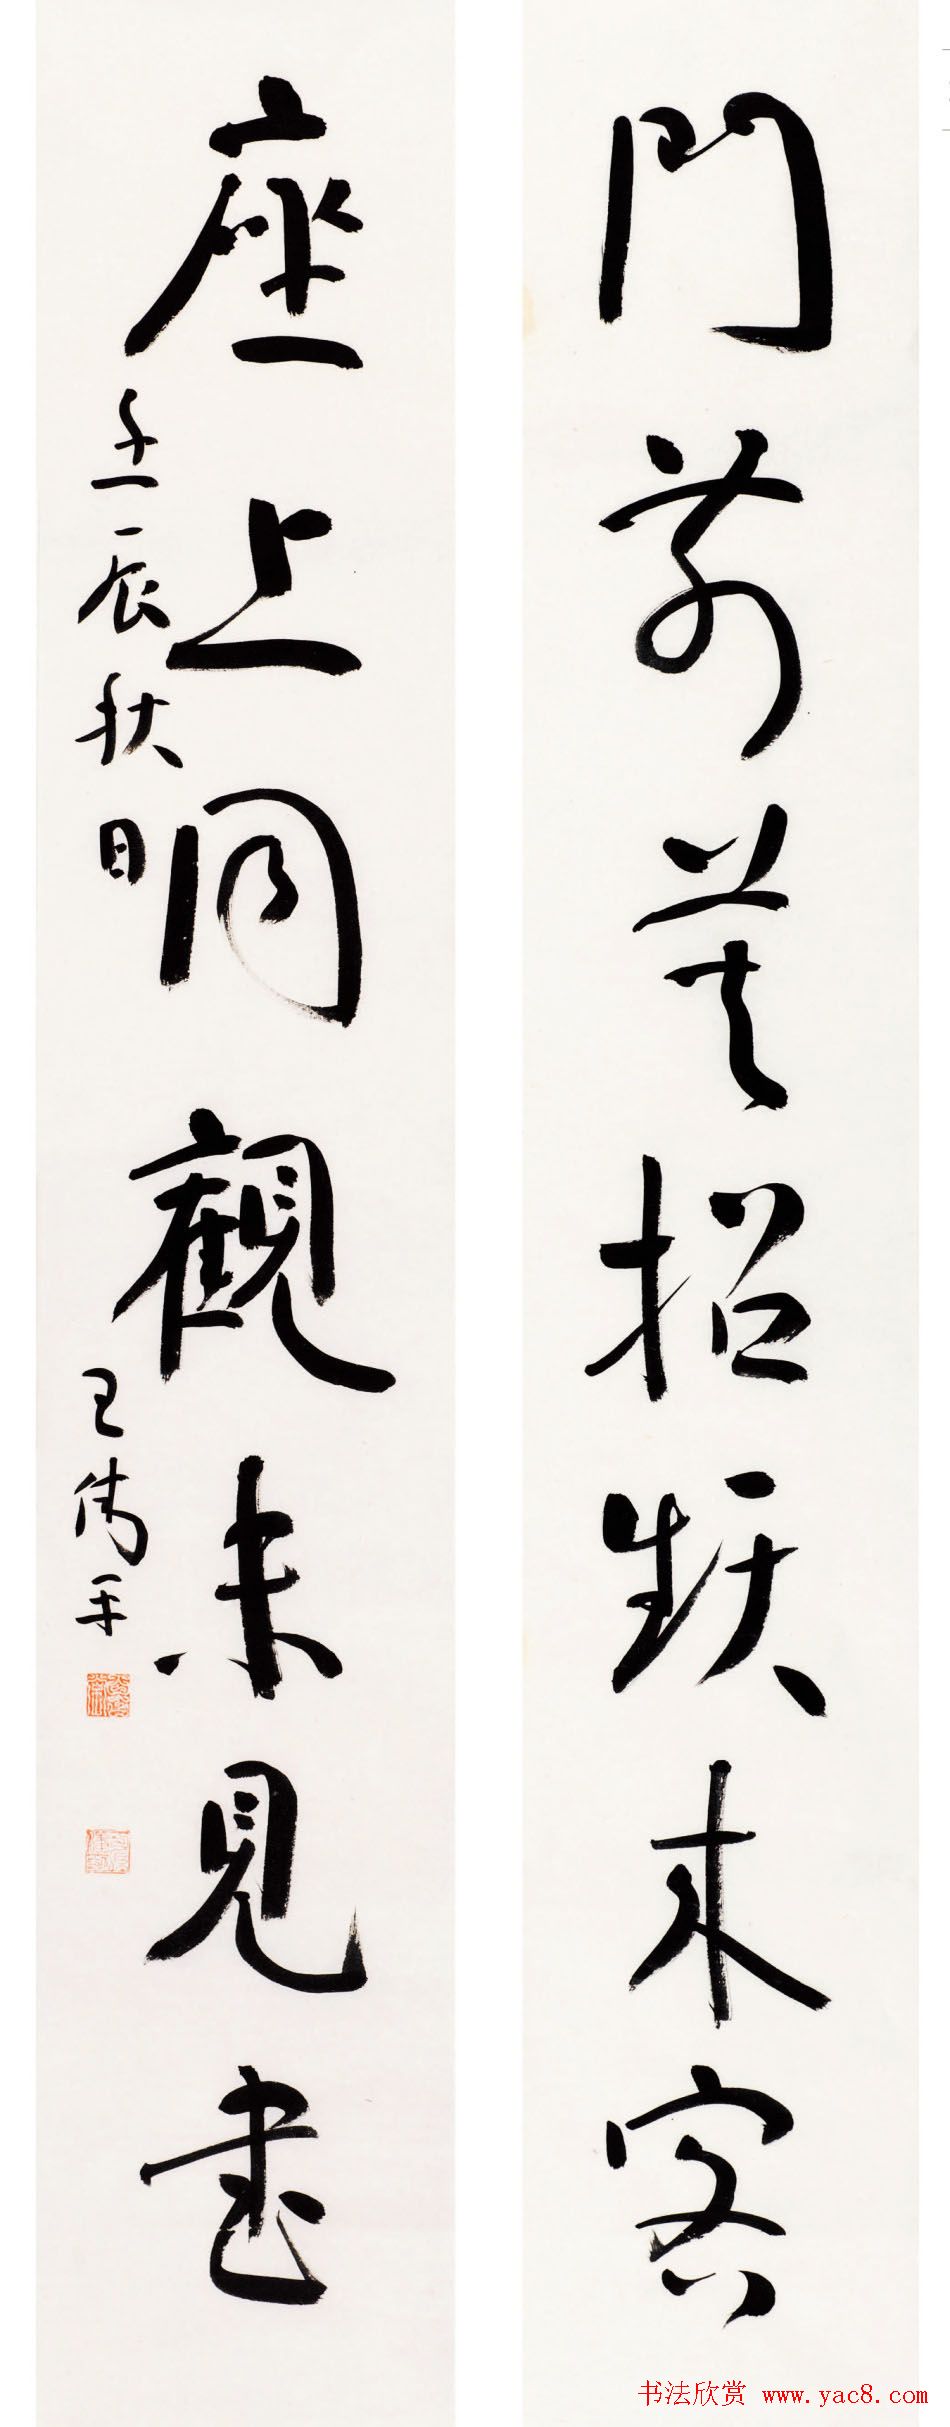 門前莫招頻來客
座上同觀未見書
壬辰秋日
王偉平
书法欣赏 www.yac8.com